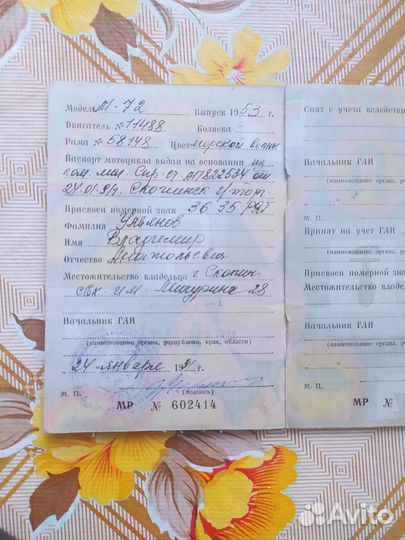 Модель М-72 Выпуск 1953 г.
Двигатель № 11488 Коляска
Рама № 58148 Цвет морской волны
Паспорт мотоцикла выдан на основании
24.01.91г. Скопинск
Присвоен номерной знак 3635
Фамилия Ульянов
Имя Владимир
Отчество Анатольевич
Местожительство владельца г. Скопин
свх им. Мичурина 28
Начальник ГАИ
(наименование органа, республики, края, области)
24 января 1991 г.
М. П. (подпись)
МР № 602414
Снят с учета вследствие
Начальник ГАИ
(наименование органа, ре
М. П.
Принят на учет ГАИ
Присвоен номерной
Местожительство
Начальник ГАИ
(наименование органа, ре
М. П.
МР №
Avito